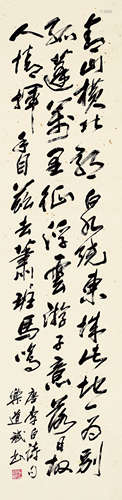 青山橫北郭白水繞東城此地一為別
孤蓬萬里征浮雲游子意落日故
人情揮手自茲去蕭班馬鳴
唐李白詩句